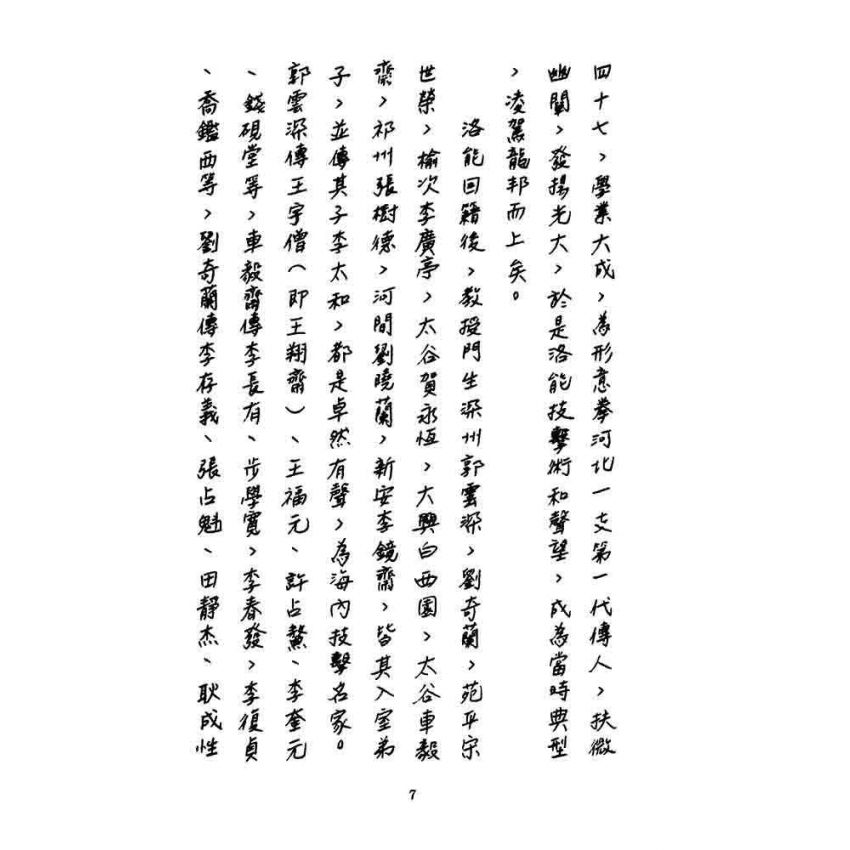 四十七，學業大成，為形意拳河北一支第一代傳人，扶微
幽闡，發揚光大，於是洛能技擊術和聲望，成為當時典型
，凌駕龍邦而上矣。
洛能回籍後，教授門生深州郭雲深，劉奇蘭，苑平宗
世榮，榆次李廣亭，太谷賀永恆，大興白西園，太谷車毅
齋，祁州張樹德，河間劉曉蘭，新安李鏡齋，皆其入室弟
子，並傳其子李太和，都是卓然有聲，為海內技擊名家。
郭雲深傳王宇僧（即王翔齋）、王福元、許占鰲、李奎元
、錢硯堂等，車毅齋傳李長有、步學寬，李春發，李復貞
、喬鑑西等，劉奇蘭傳李存義、張占魁、田靜杰、耿成性
7